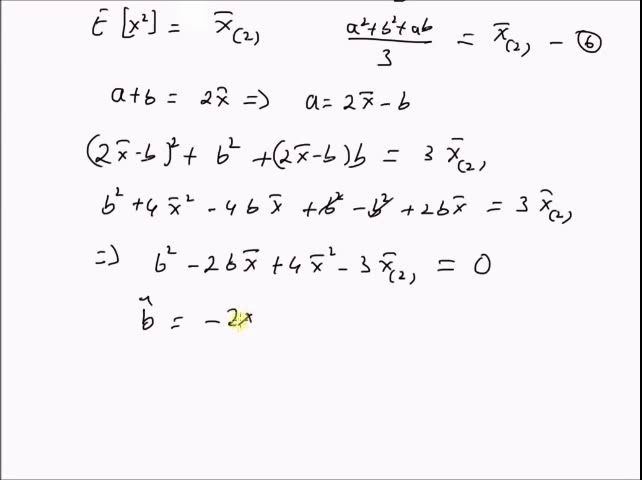 E [x²] = x̄₍₂₎    (a²+b²+ab)/3 = x̄₍₂₎ — ⑥
a+b = 2x̄ => a = 2x̄ - b
(2x̄-b)² + b² + (2x̄-b)b = 3 x̄₍₂₎
b² + 4x̄² - 4bx̄ + b² - b² + 2bx̄ = 3 x̄₍₂₎
=> b² - 2bx̄ + 4x̄² - 3x̄₍₂₎ = 0
b̂ = -2x